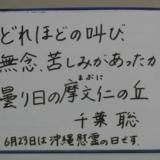 どれほどの叫び、
無念、苦しみがあったか
まぶに
曇り日の摩文仁の丘
千葉 聡
6月23日は沖縄慰霊の日です。